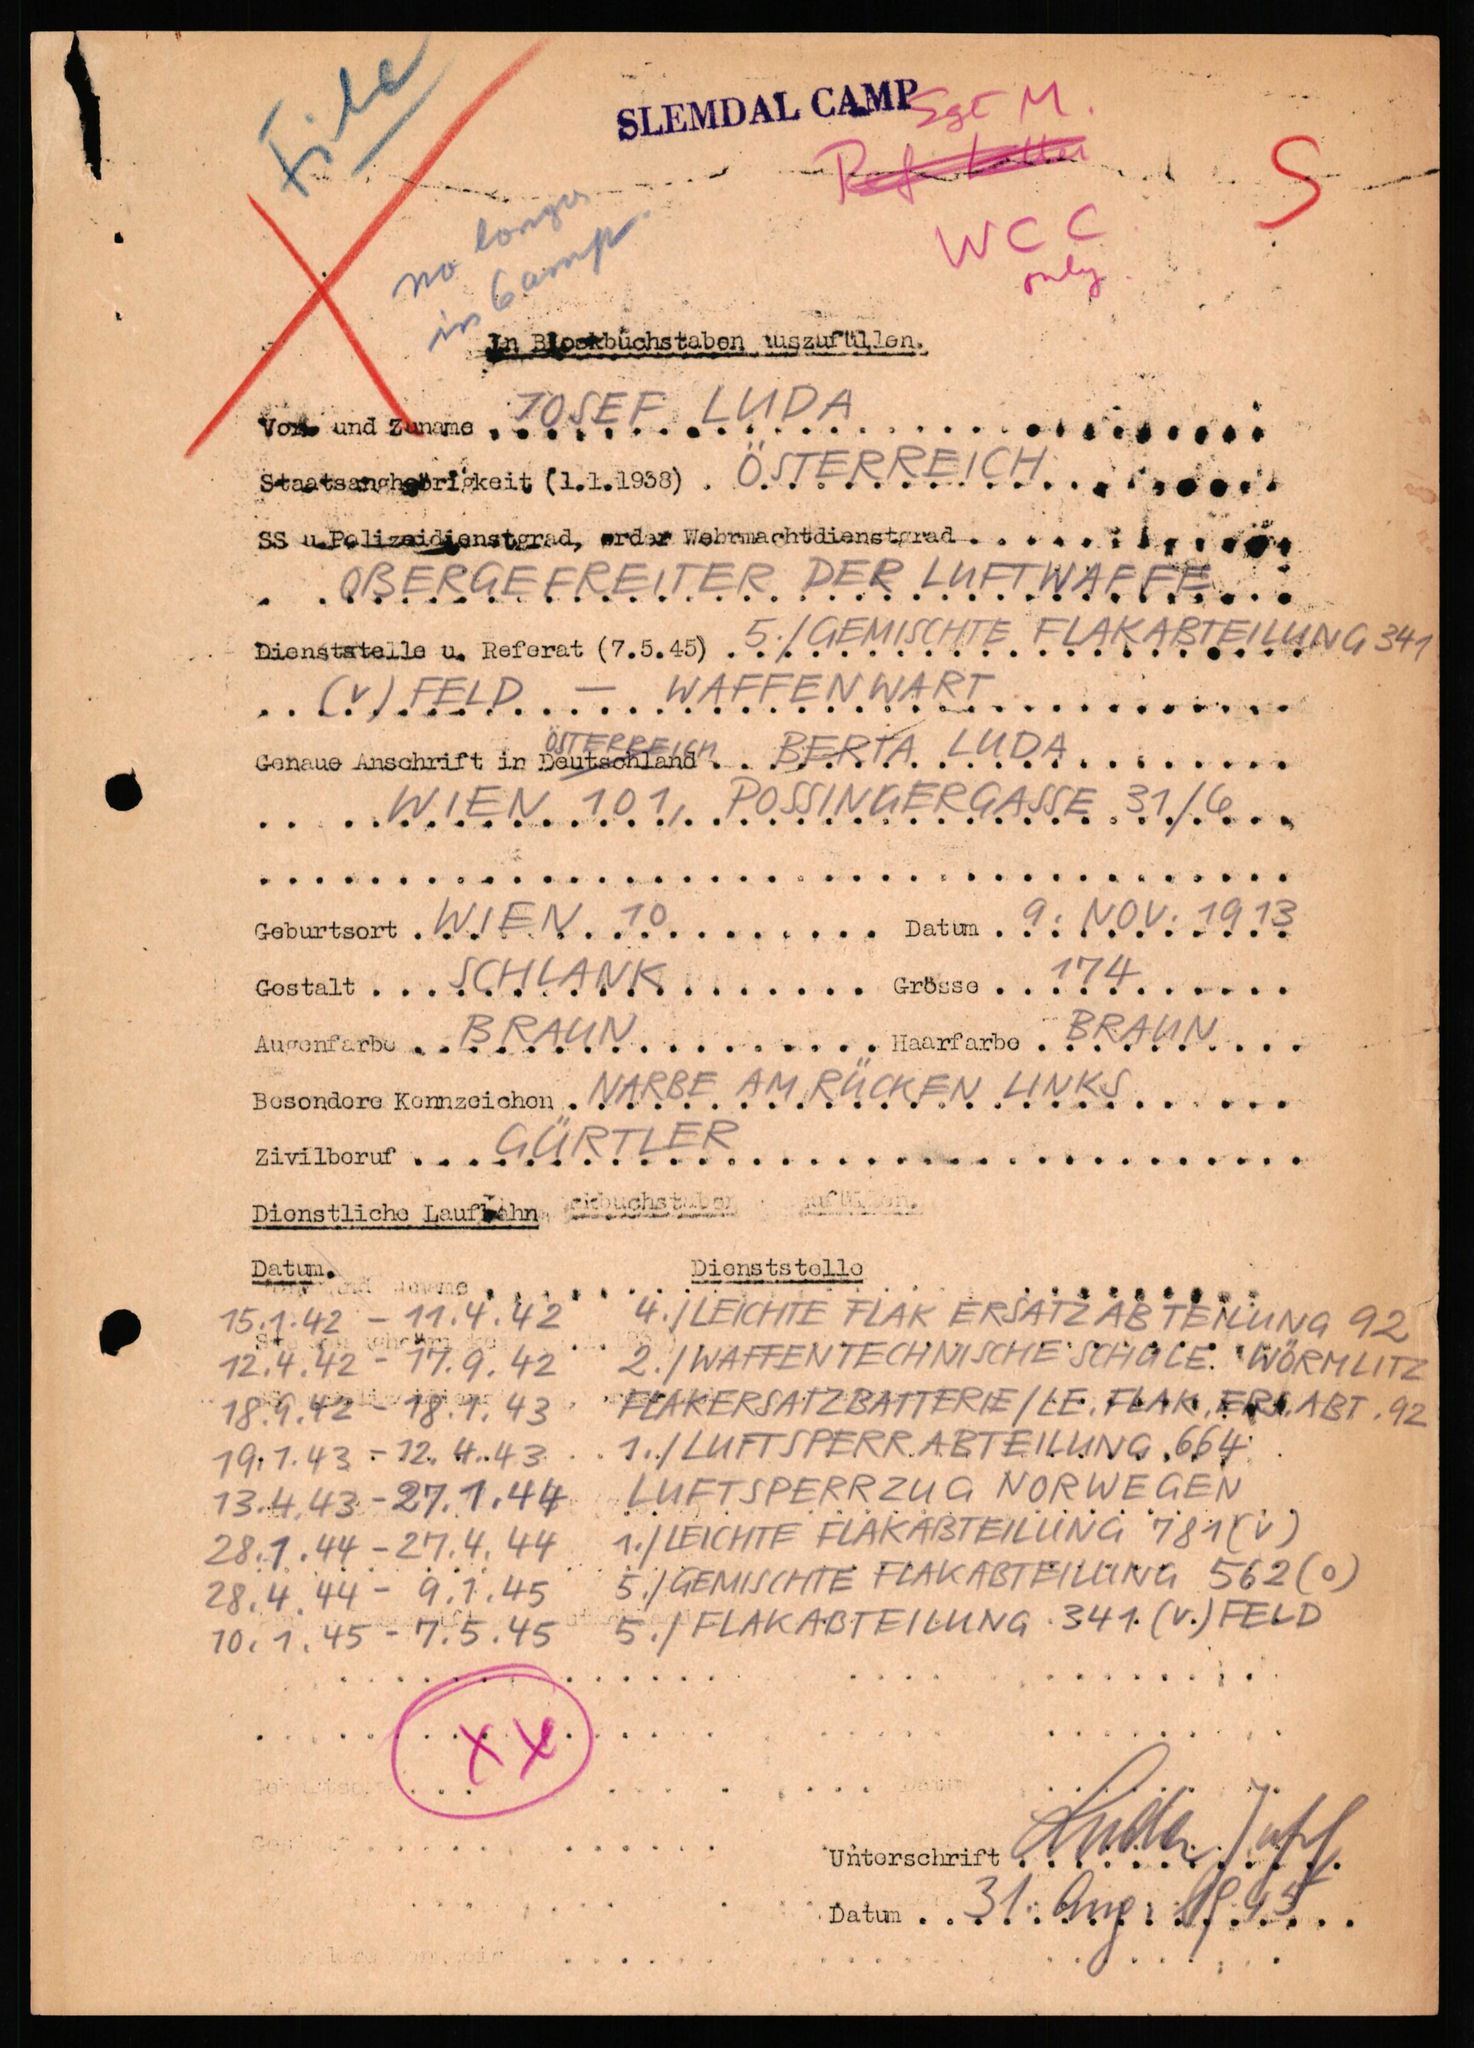 File
SLEMDAL CAMP
Sgt M.
Ref Letter
S
no longer
in Camp.
WCC
only.
In Blockbuchstaben auszufüllen.
Vor- und Zuname . JOSEF LUDA
Staatsangehörigkeit (1.1.1938) . ÖSTERREICH
SS u.Polizeidienstgrad, order Wehrmachtdienstgrad
OBERGEFREITER DER LUFTWAFFE
Dienststelle u. Referat (7.5.45) . 5./GEMISCHTE FLAKABTEILUNG 341
(v) FELD — WAFFENWART
ÖSTERREICH
Genaue Anschrift in Deutschland . BERTA LUDA
WIEN 101, POSSINGERGASSE 31/6
Geburtsort . WIEN 10 Datum . 9. NOV. 1913
Gestalt . SCHLANK Grösse . 174
Augenfarbe . BRAUN Haarfarbe . BRAUN
Besondere Kennzeichen . NARBE AM RÜCKEN LINKS
Zivilberuf . GÜRTLER
Dienstliche Laufbahn
Datum. Dienststelle
15.1.42 - 11.4.42 4./LEICHTE FLAK ERSATZABTEILUNG 92
12.4.42 - 17.9.42 2./WAFFENTECHNISCHE SCHULE WÖRMLITZ
18.9.42 - 18.1.43 FLAKERSATZBATTERIE/LE. FLAK. ERS. ABT. 92
19.1.43 - 12.4.43 1./LUFTSPERRABTEILUNG 664
13.4.43 - 27.1.44 LUFTSPERRZUG NORWEGEN
28.1.44 - 27.4.44 1./LEICHTE FLAKABTEILUNG 781(v)
28.4.44 - 9.1.45 5./GEMISCHTE FLAKABTEILUNG 562(o)
10.1.45 - 7.5.45 5./FLAKABTEILUNG 341.(v.) FELD
XX
Unterschrift . Luda Josef
Datum . 31. Aug. 1945